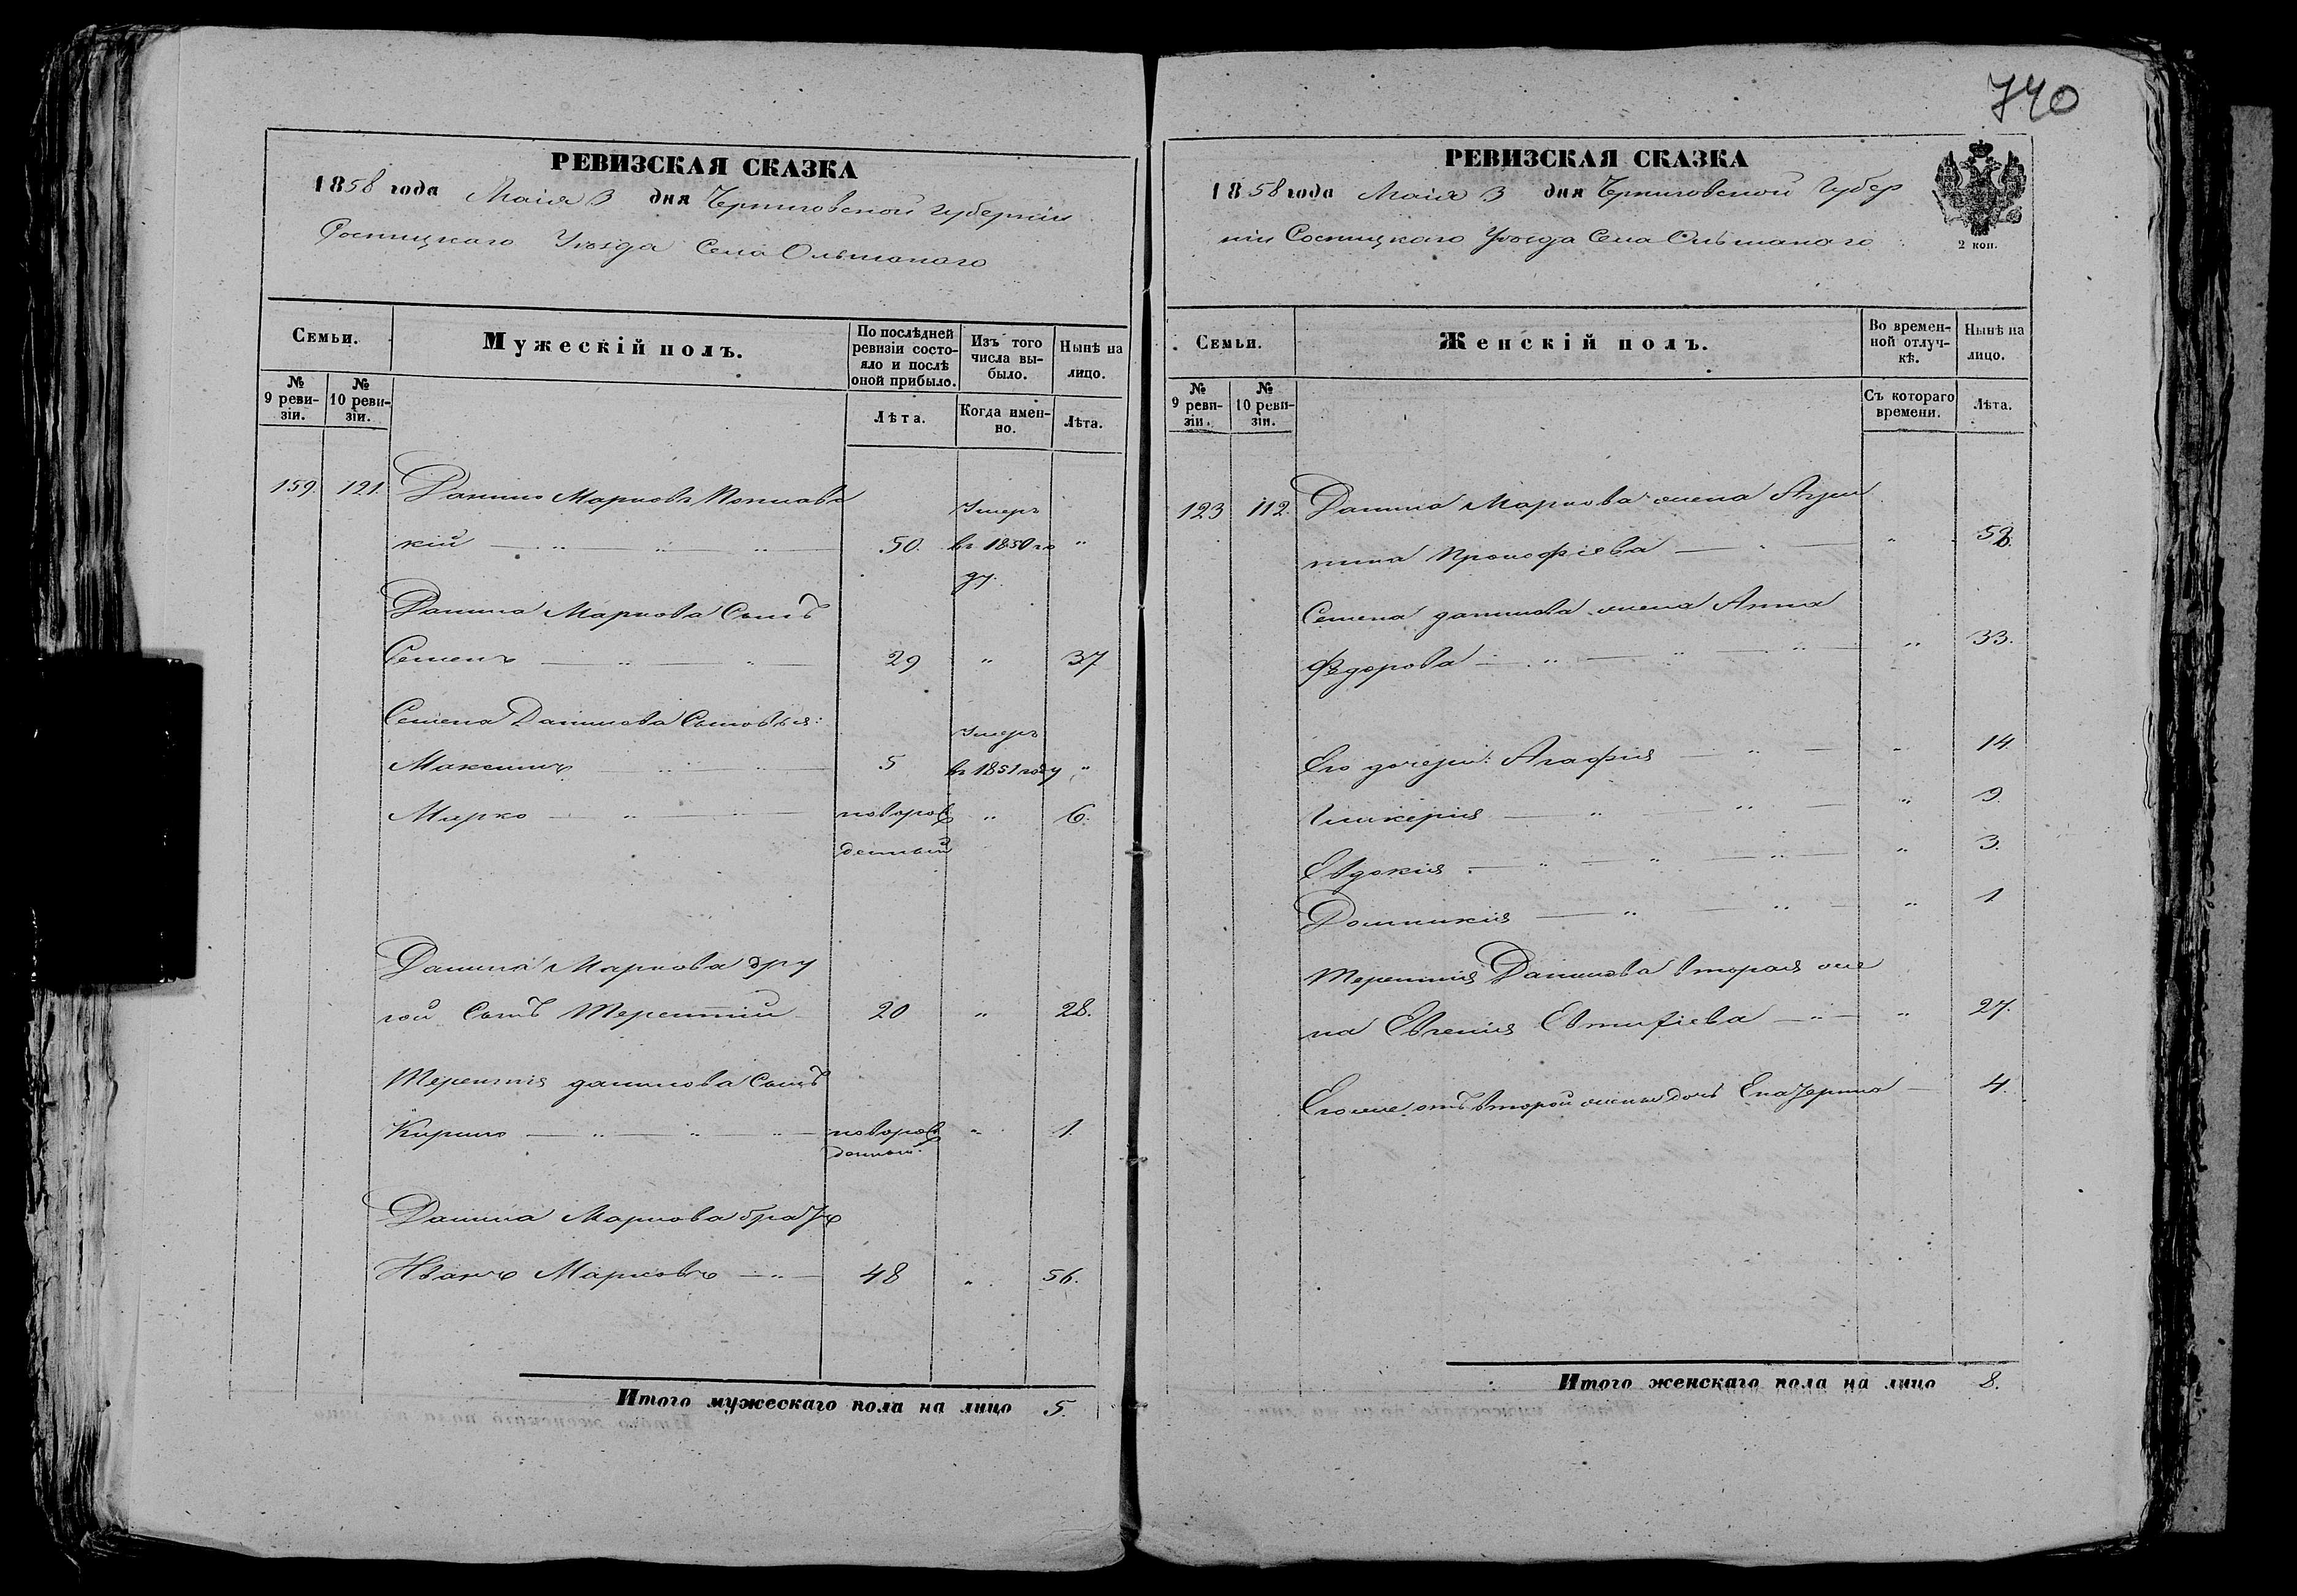 740
РЕВИЗСКАЯ СКАЗКА
1858 года Маія 3 дня Черниговской Губерніи
Сосницкаго Уѣзда Села Ольшанаго
Семьи.
№ 9 ревизіи.
№ 10 ревизіи.
Мужескій полъ.
По послѣдней ревизіи состояло и послѣ оной прибыло.
Лѣта.
Изъ того числа выбыло.
Когда именно.
Нынѣ на лицо.
Лѣта.
159. 121. Данило Марковъ
кій 50. Умеръ въ 1850 году. "
Данила Маркова Сынъ
Семенъ 29 " 37
Семена Данилова Сыновья:
Максимъ 5 Умеръ въ 1851 году "
Марко новорожденный " 6.
Данила Маркова дру
гой Сынъ Терентій 20 " 28.
Терентія данилова Сынъ
Кирило новорожденный. " 1.
Данила Маркова братъ
Иванъ Марковъ 48 " 56.
Итого мужескаго пола на лицо 5.
РЕВИЗСКАЯ СКАЗКА
1858 года Маія 3 дня Черниговской Губер
ніи Сосницкаго Уѣзда Села Ольшанаго
2 коп.
Семьи.
№ 9 ревизіи.
№ 10 ревизіи.
Женскій полъ.
Во временной отлучкѣ.
Съ котораго времени.
Нынѣ на лицо.
Лѣта.
123 112. Данила Маркова жена
Прокофіева "
Семена данилова жена Анна
Федорова " 33.
Его дочери: Агафія " 14.
Гликерія " 9.
Евдокія " 3.
Домникія " 1
Терентія Данилова вторая же
на Евгенія Евтифіева " 27.
Его же отъ второй жены дочь Екатерина 4.
Итого женскаго пола на лицо 8.